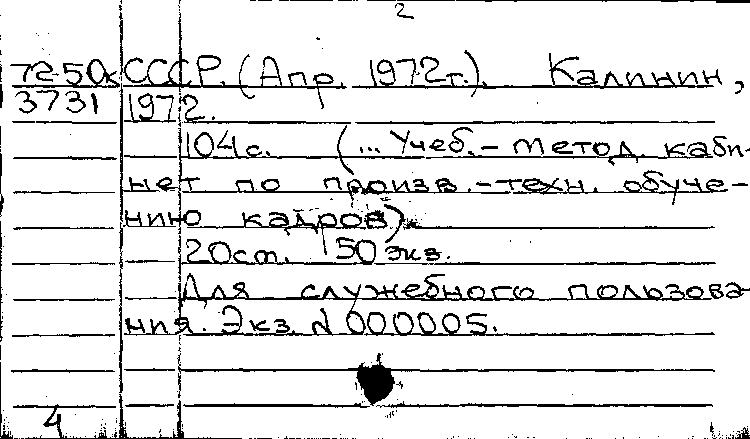 2
72-50к СССР. (Апр. 1972г.). Калинин,
3731 1972.
104с. (... Учеб.-метод. каби-
нет по произв.-техн. обуче-
нию кадров).
20см. 150 экз.
Для служебного пользова-
ния. Экз. № 000005.
4